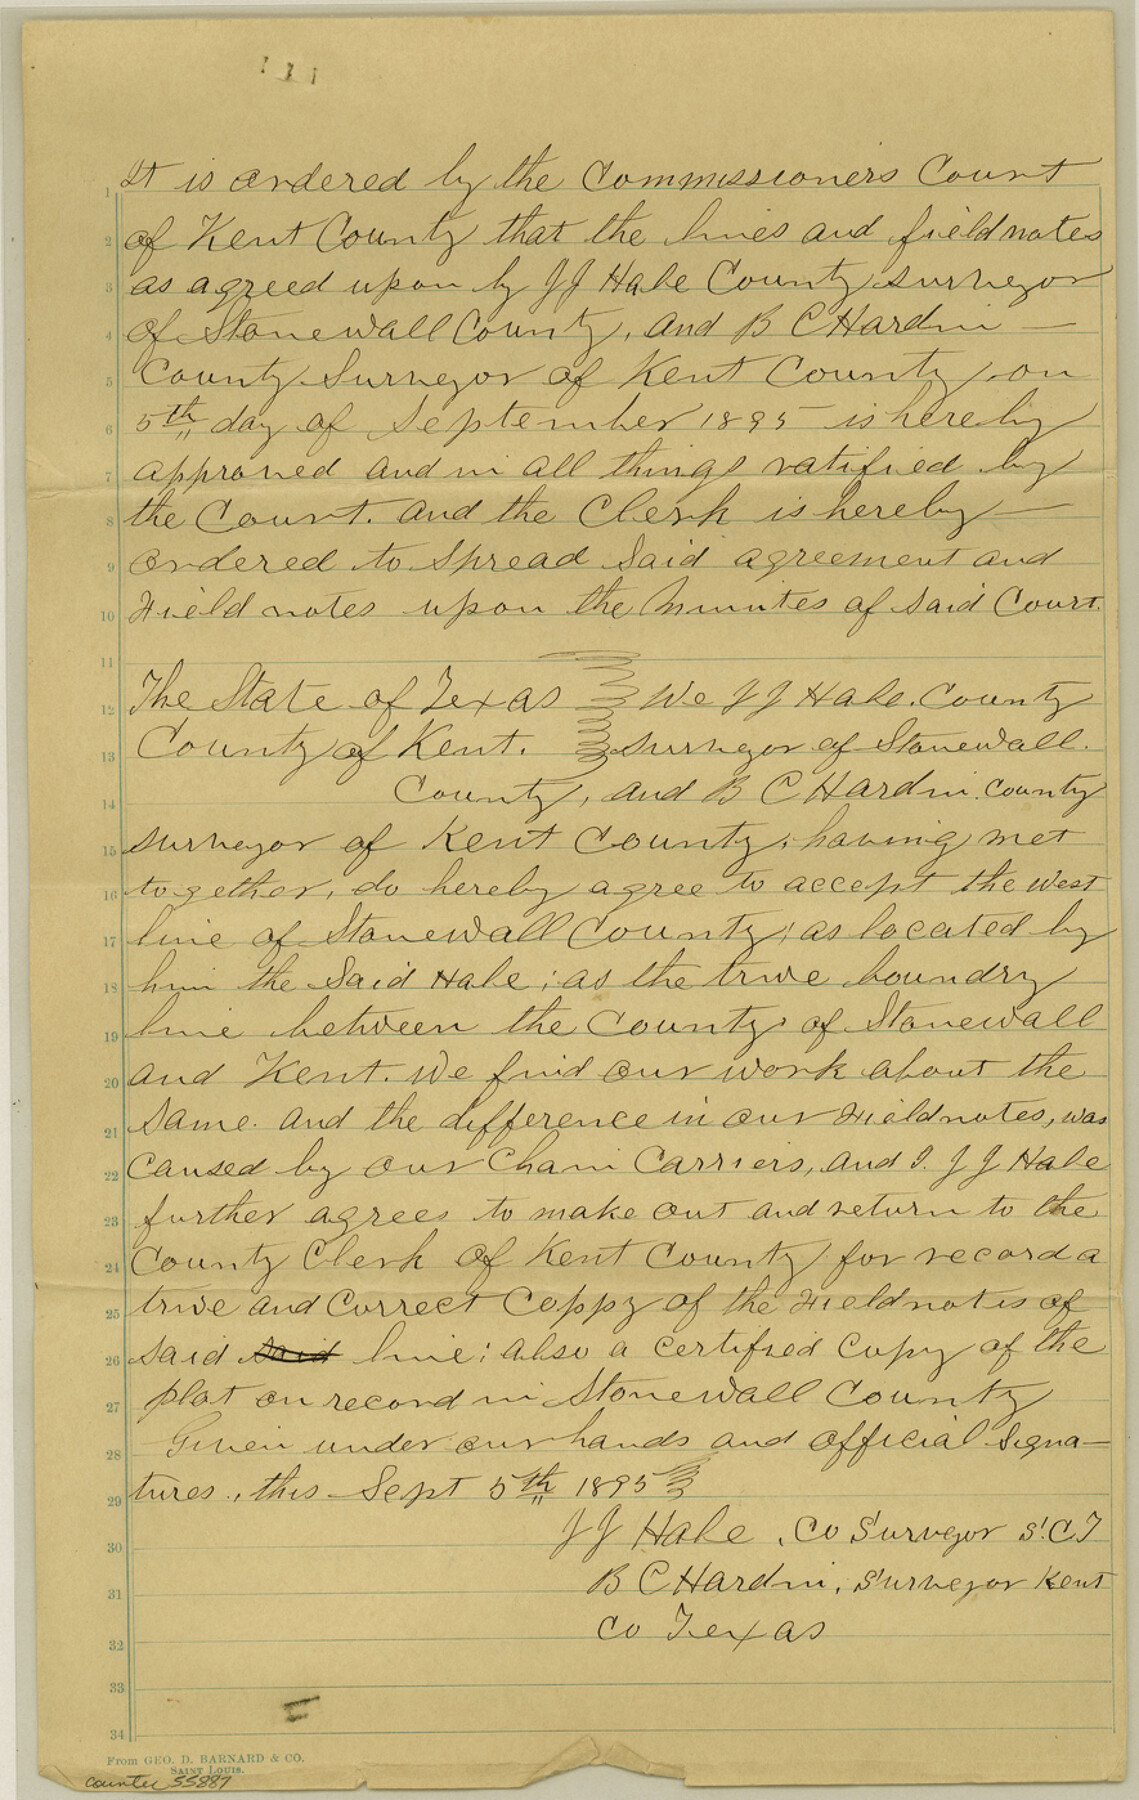 It is ordered by the Commissioners Court
of Kent County that the lines and fieldnotes
as agreed upon by JJ Hale County surveyor
of Stonewall County, and B C Hardin —
County Surveyor of Kent County, on
5th day of September 1895 is hereby
approved and in all things ratified by
the Court. and the Clerk is hereby —
ordered to spread said agreement and
Field notes upon the minutes of said Court.
The State of Texas } We JJ Hale. County
County of Kent. } surveyor of Stonewall.
County, and B C Hardin. County
surveyor of Kent County, having met
together, do hereby agree to accept the west
line of Stonewall County; as located by
him the Said Hale; as the trwe boundry
line between the County of Stonewall
and Kent. we find our work about the
same. and the difference in our Fieldnotes, was
caused by our Chain Carriers, and I. JJ Hale
further agrees to make out and return to the
County Clerk of Kent County for record a
trwe and Correct Coppy of the Fieldnotes of
said said line; also a certified Copy of the
plat on record in Stonewall County
Given under our hands and official Signa—
tures., this Sept 5th 1895
JJ Hale, Co Surveyor S.C.T
B C Hardin, Surveyor Kent
Co Texas
1
2
3
4
5
6
7
8
9
10
11
12
13
14
15
16
17
18
19
20
21
22
23
24
25
26
27
28
29
30
31
32
33
34
From GEO. D. BARNARD & CO.
SAINT LOUIS.
counter 55887